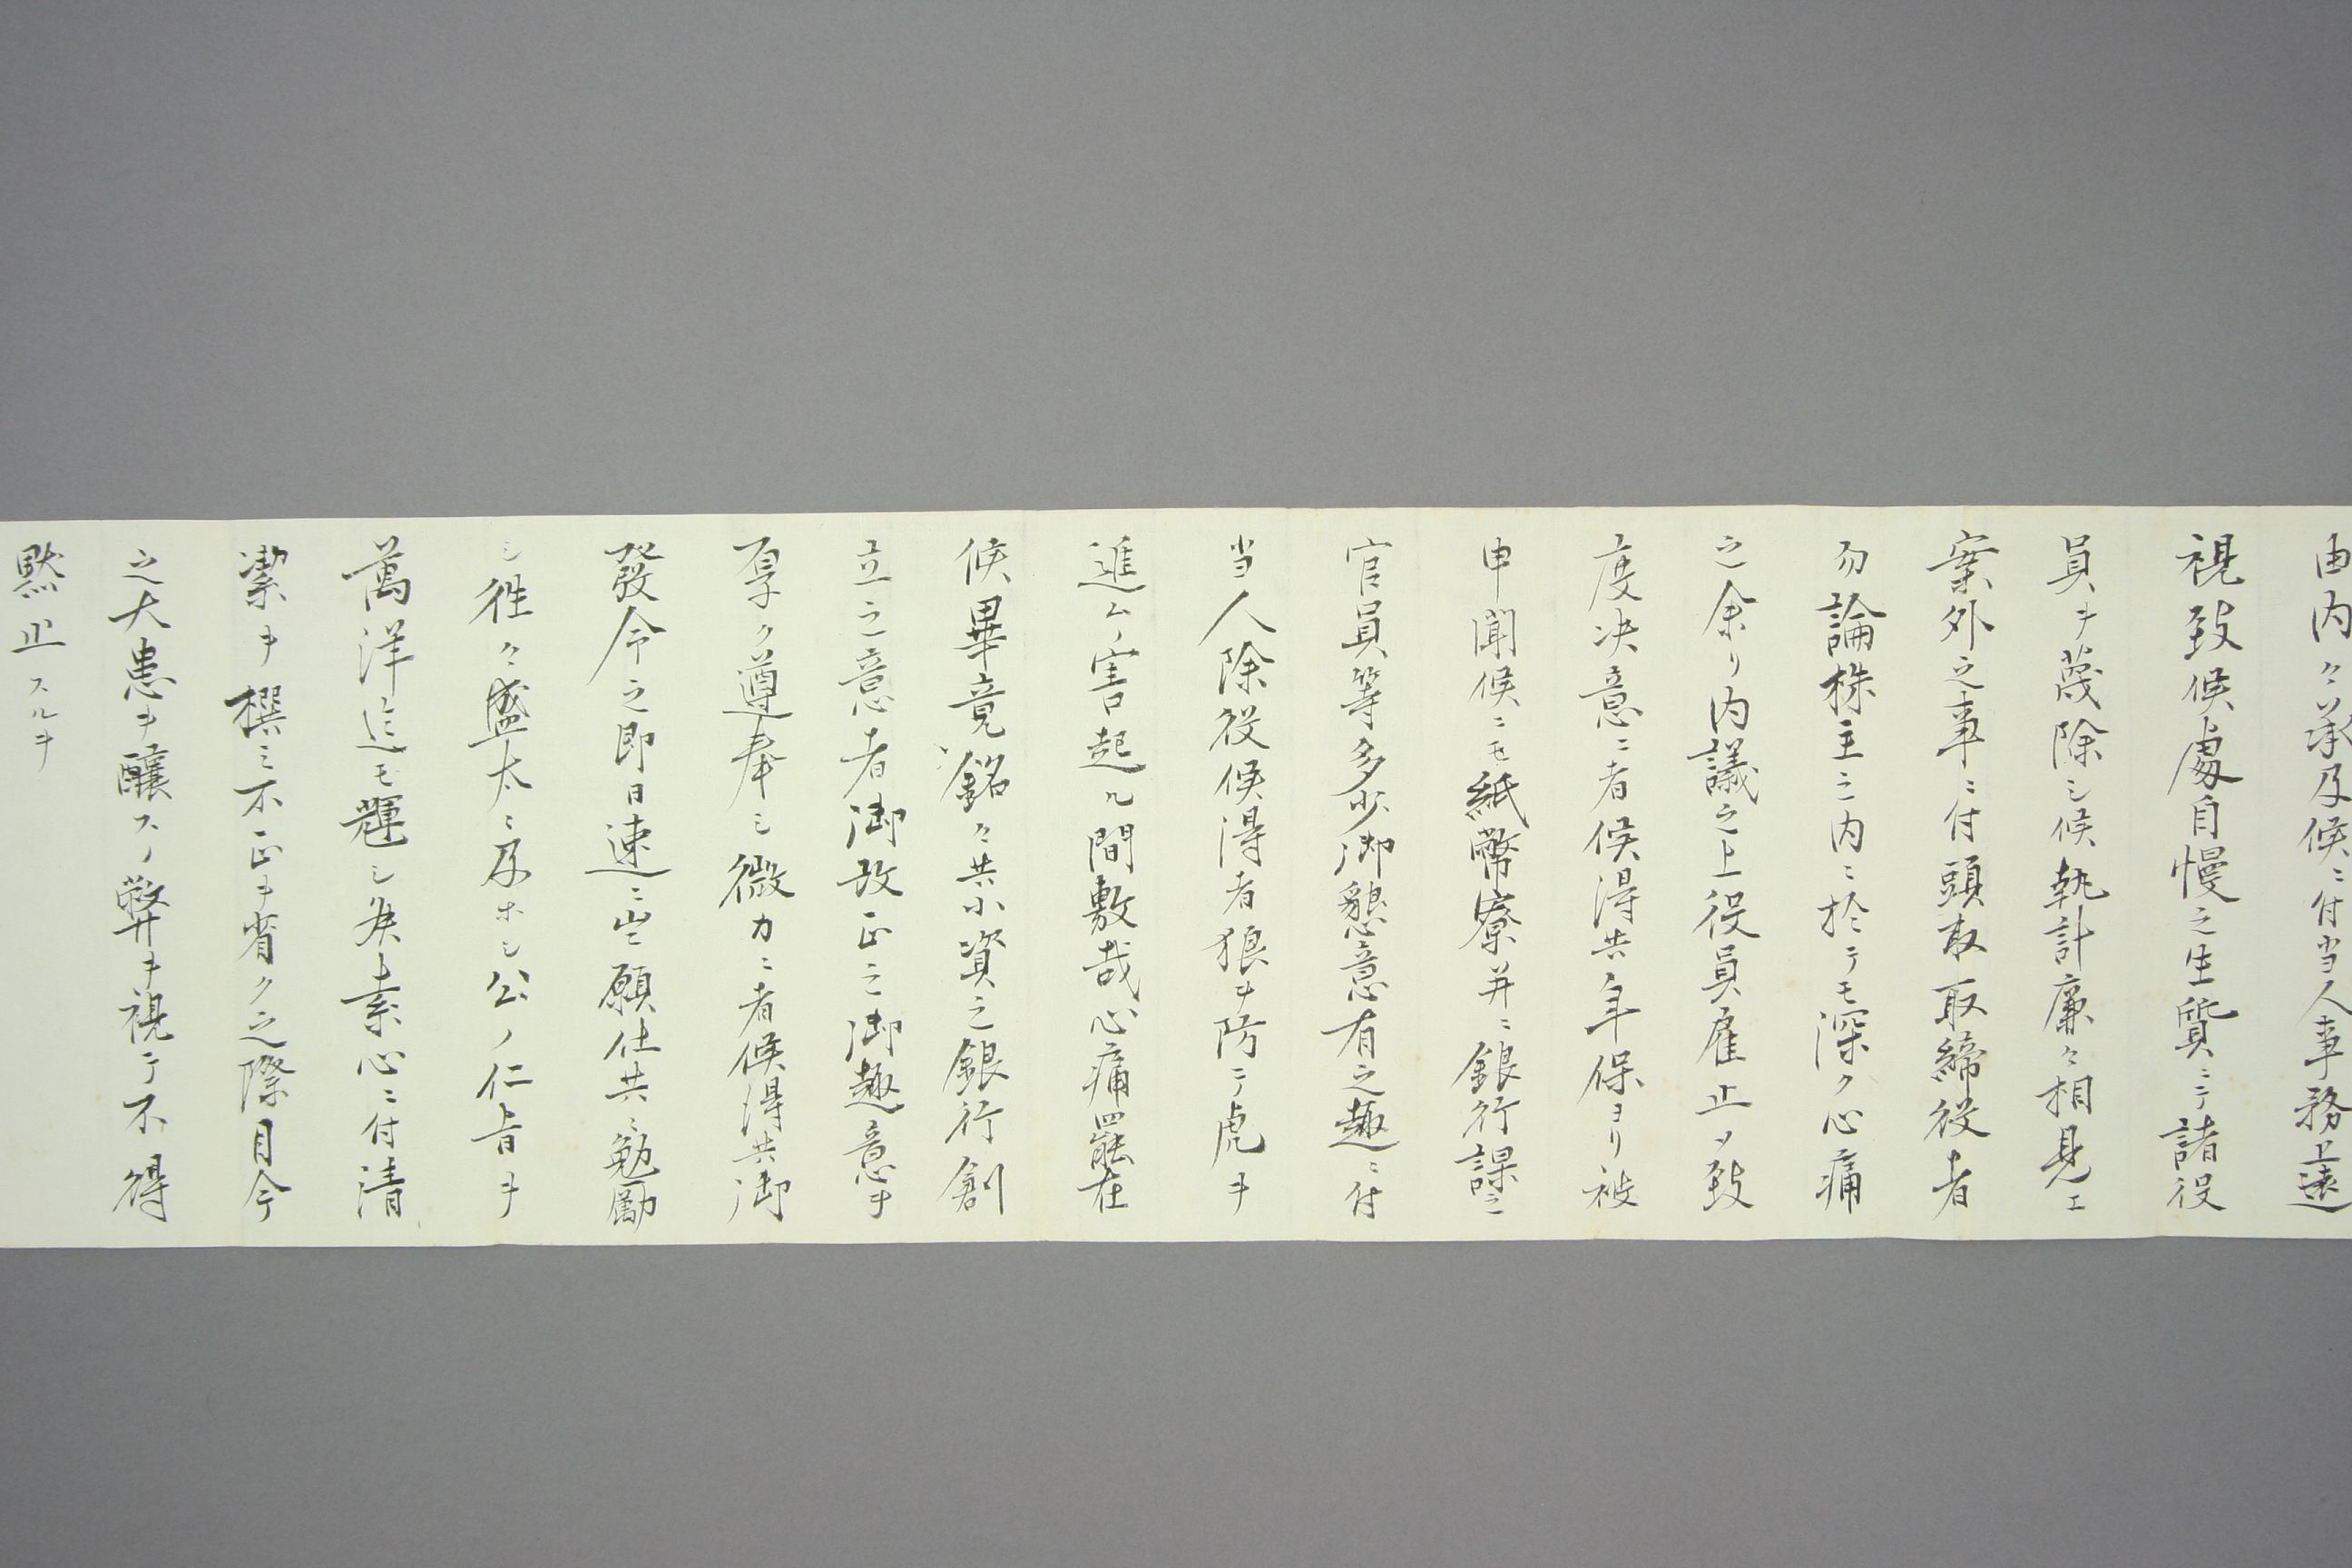 由内々承及候ニ付当人事務上遠
視致候處自慢之生質ニテ諸役
員ヲ蔑除シ候執計廉々相見エ
案外之事ニ付頭取取締役者
勿論株主之内ニ於テモ深ク心痛
之余リ内議之上役員雇止ノ致
度决意ニ者候得共年保ヨリ被
申聞候ニモ紙幣寮并ニ銀行課之
官員等多少御懇意有之趣ニ付
当人除役候得者狼ヲ防テ虎ヲ
進ムノ害起ル間敷哉心痛罷在
候畢竟銘々共小資之銀行創
立之意者御改正之御趣意ヲ
厚ク遵奉シ微力ニ者候得共御
發令之即日速ニ出願仕共ニ勉勵
シ徃々盛大ニ及ホシ公ノ仁旨ヲ
萬洋迄モ輝シ度素心ニ付清
潔ヲ撰ミ不正ヲ省ク之際目今
之大患ヲ釀スノ弊ヲ視テ不得
黙止スルヲ